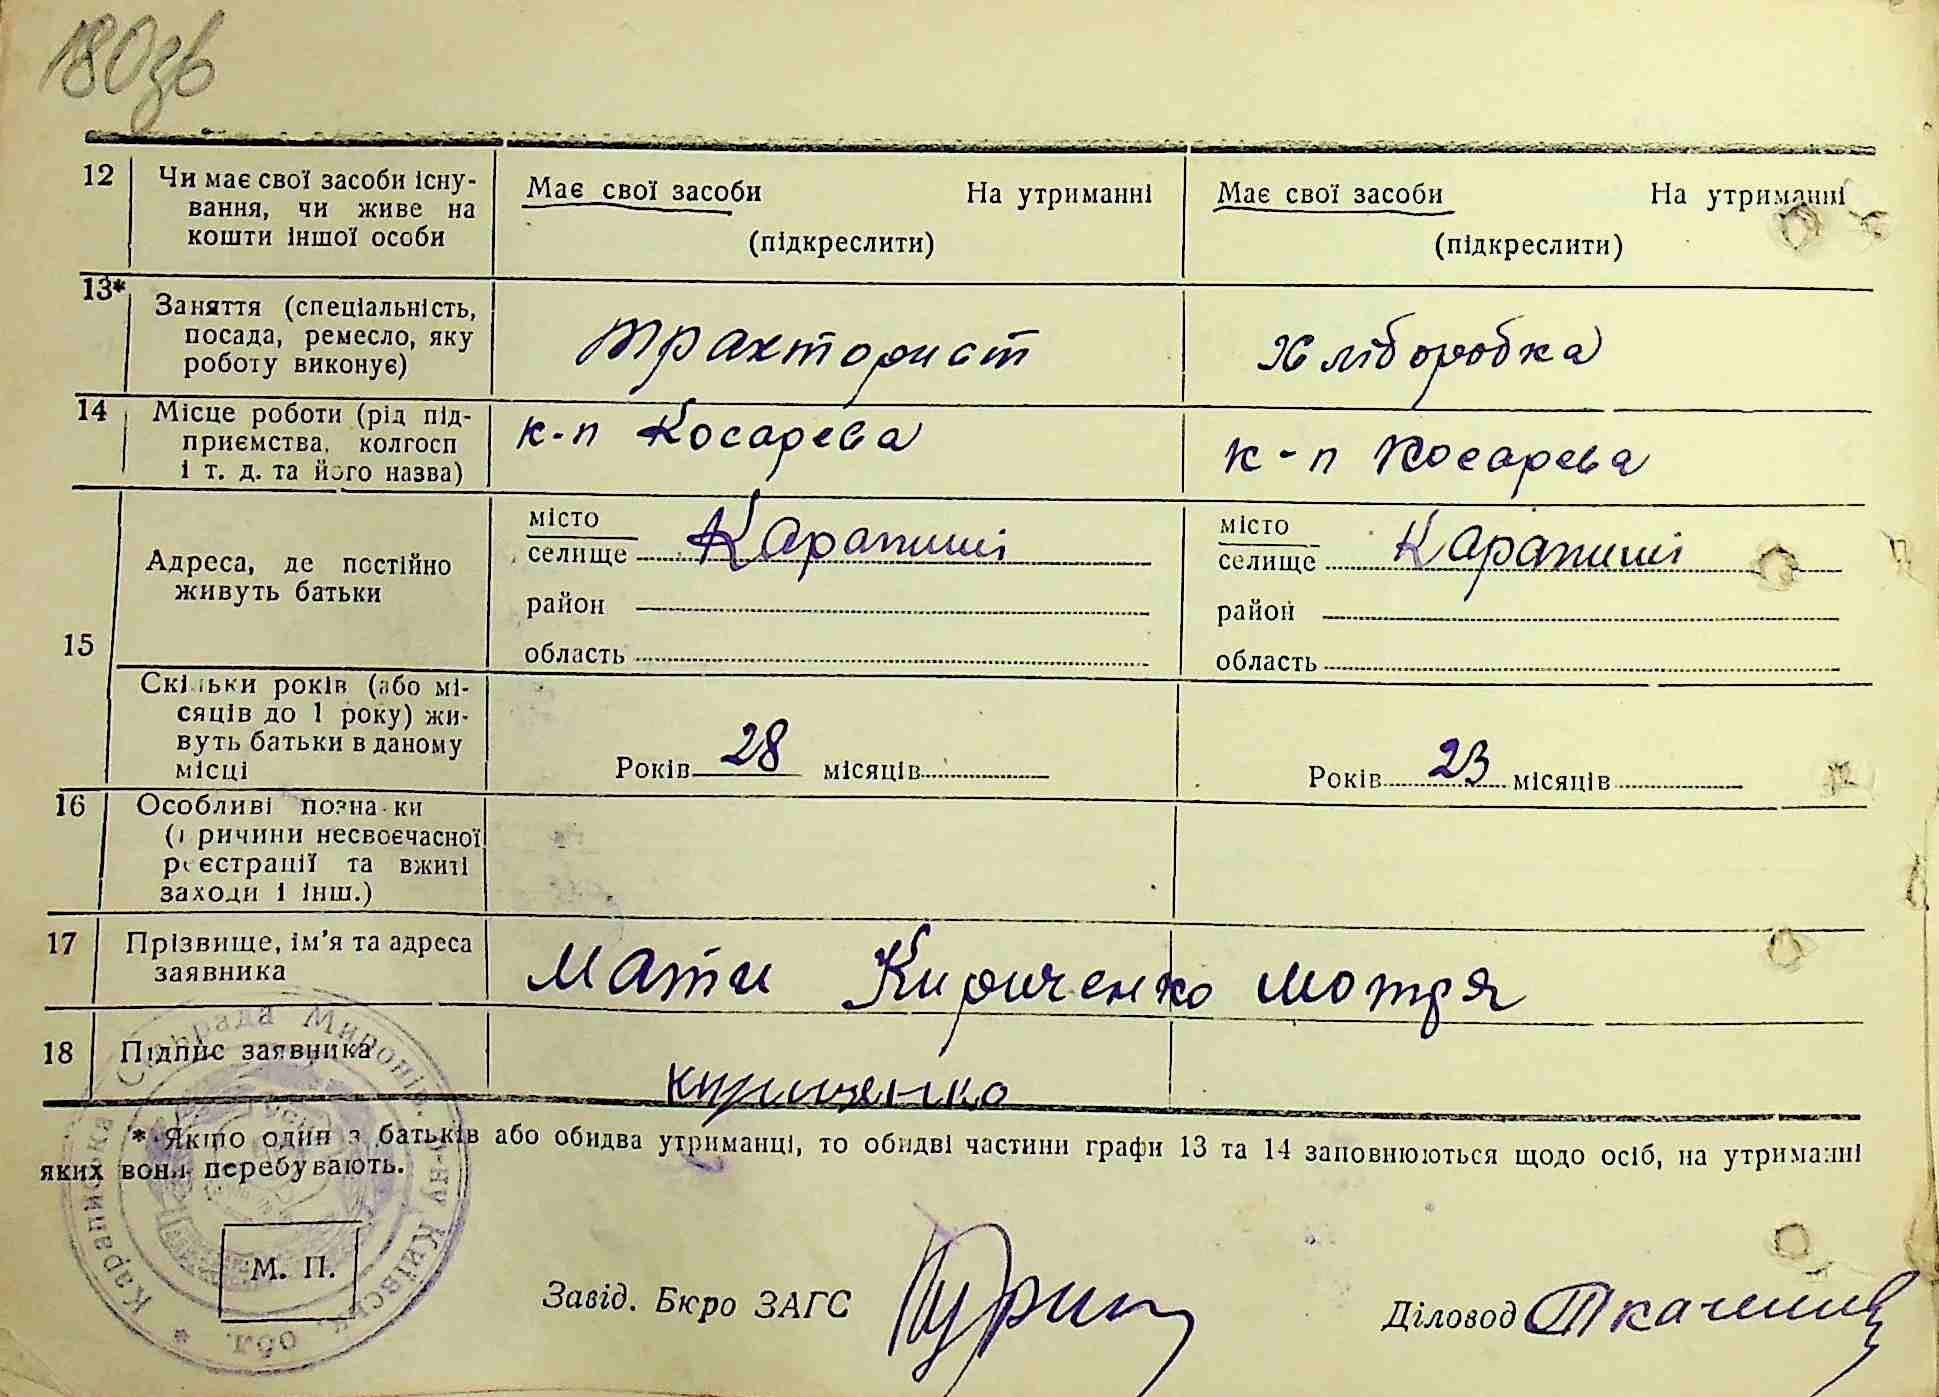 180зв
12 Чи має свої засоби існу-
вання, чи живе на
кошти іншої особи
Має свої засоби На утриманні
(підкреслити)
Має свої засоби На утриманні
(підкреслити)
13* Заняття (спеціальність,
посада, ремесло, яку
роботу виконує)
тракторист
Хліборобка
14 Місце роботи (рід під-
приємства, колгосп
і т. д. та його назва)
к-п Косарева
к-п Косарева
15 Адреса, де постійно
живуть батьки
місто
селище Карапиші
район
область
місто
селище Карапиші
район
область
Скільки років (або мі-
сяців до 1 року) жи-
вуть батьки в даному
місці
Років 28 місяців
Років 23 місяців
16 Особливі познаки
(причини несвоєчасної
реєстрації та вжиті
заходи і інш.)
17 Прізвище, ім'я та адреса
заявника
Мати Кириченко Мотря
18 Підпис заявника
Кириченко
* Якщо один з батьків або обидва утриманці, то обидві частини графи 13 та 14 заповнюються щодо осіб, на утриманні
яких вони перебувають.
Караписька Сільрада Миронів. р-ну Київськ. обл. *
М. П.
Завід. Бюро ЗАГС
Діловод